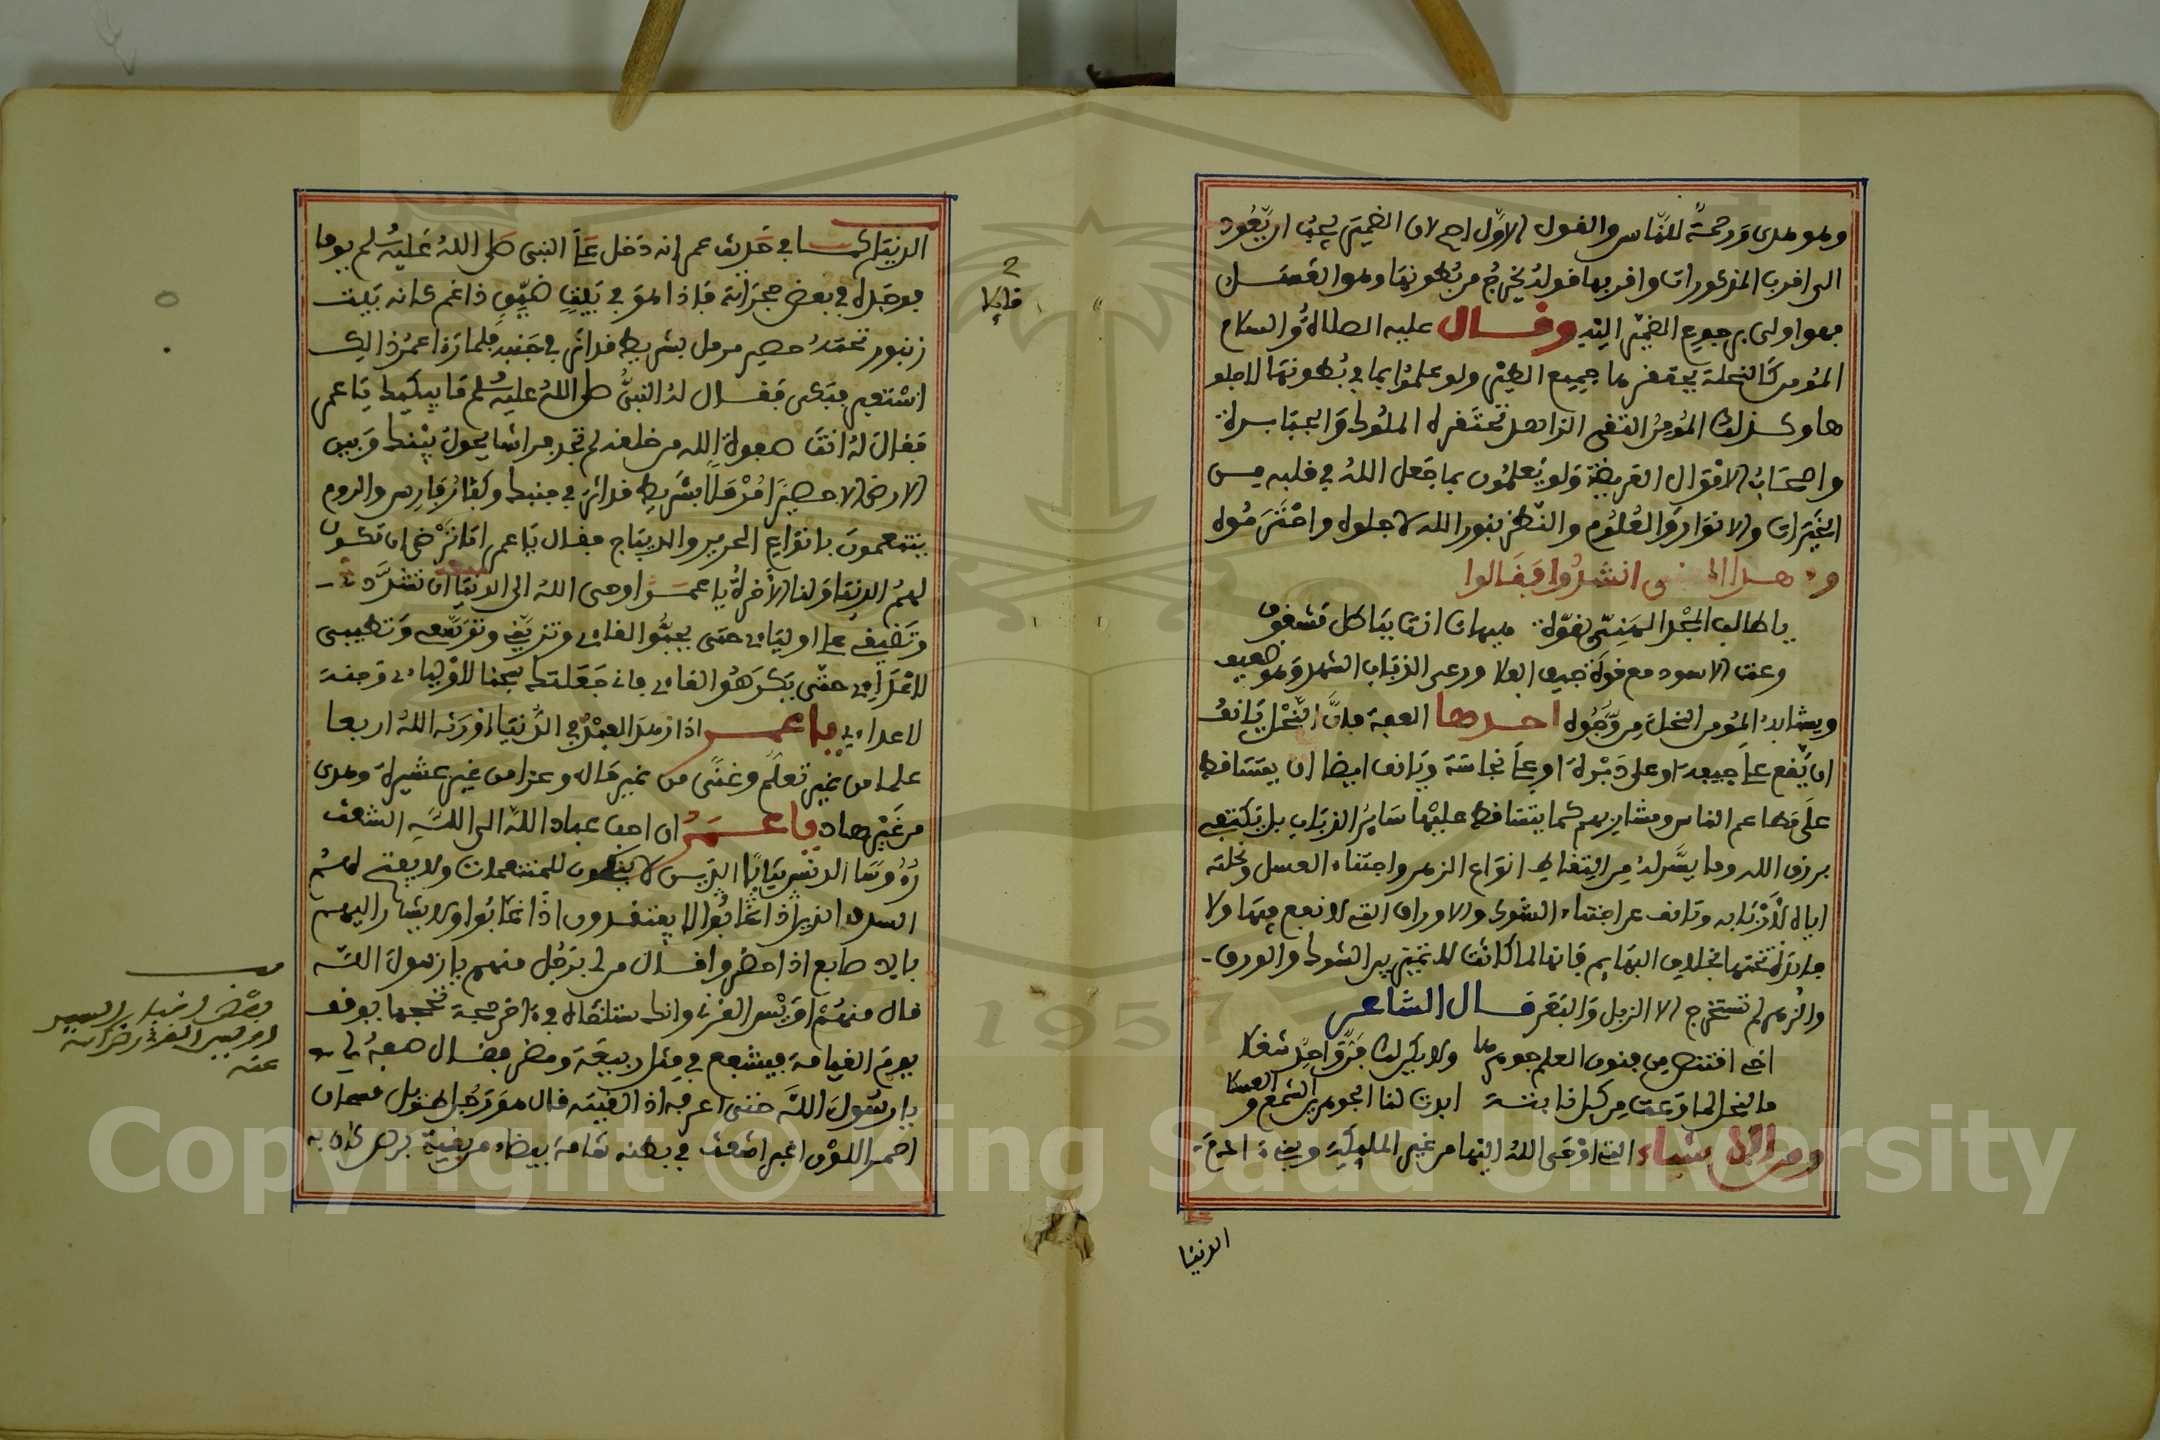 وهو هدى ورحمة للناس والقول الاول اصح لان الضمير يجب ان يعود
الى اقرب المذكورات واقربها قوله يخرج من بطونها وهو العسل
فهو اولى برجوع الضمير اليه وقال عليه الصلاة والسلام
المومن كالنحلة يحتقرها جميع الطير ولو علموا بما في بطونها لاجلو
ها وكذلك المومن التقي الزاهد تحتقره الملوك والجبابرة
واصحاب الاقوال العريضة ولو يعلمون بما جعل الله في قلبه من
الخيرات والانوار والعلوم والنظر بنور الله لاجلوه واحترموه
وفي هذا المعنى انشدوا فقالوا
يا طالب المجد السني بقوة هيهات انت بباطل مشغوف
وعت الاسود مع قوة جيف الفلا ورعى الذباب الشهد وهو ضعيف
ويشابه المومن النحل من وجوه احدها العفة فان النحل يانف
ان يقع على جيفة او على دبرة او على نجاسة ويانف ايضا ان يتساقط
على طعام الناس ومشاربهم كما يتساقط عليها سائر الذباب بل يكتفي
برزق الله وما يسره له من التقاط انواع الزهر واجتناء العسل ونحلته
اياه لاربابه وتانف عن اجتناء الشوك والاوراق التي لا نفع فيها ولا
فايدة تحتها بخلاف البهايم فانها لما كانت لا تميز بين الشوك والورق
والزهر لم تستخرج الا الزبل والبعر قال الشاعر
اخي اقتنص من فنون العلم جوهرها ولا يكن لك في واحد شغلا
فالنحل لما رعت من كل نابتة ابدت لنا الجوهرين الشمع والعسلا
ومن الاشياء التي اوحى الله اليها من غير الملائكة وبني ادم
الدنيا
الدنيا كما في حديث عمر انه دخل على النبي صلى الله عليه وسلم يوما
فوجده في بعض حجراته فاذا هو في بيت ضيق ذا غم كانه بيت
زنبور تحته حصير مرمل بشريط قد اثر في جنبه فلما رءا عمر ذالك
استعبر فبكى فقال له النبي صلى الله عليه وسلم ما يبكيك يا عمر
فقال له انت صفوة الله من خلقه لم تجد فراشا يحول بينك وبين
الارض الا حصيرا مرملا بشريط قد اثر في جنبك وكفار فارس والروم
يتنعمون بانواع الحرير والديباج فقال يا عمر اما ترضى ان تكون
لهم الدنيا ولنا الاخرة يا عمر اوحى الله الى الدنيا ان تشددي
وتضيقي على اوليائي حتى يحبوا لقائي وتزيني وتوسعي وتطيبي
لاعدائي حتى يكرهوا لقائي فاني جعلتك سجنا لاوليائي وجنة
لاعدائي يا عمر اذا زهد العبد في الدنيا اورثه الله اربعا
علما من غير تعلم وغنى من غير مال وعزا من غير عشيرة وهدى
من غير هاد يا عمر ان احب عباد الله الى الله الشعث
رءوسا الدنس ثيابا الذين لا ينكحون للمتنعمات ولا يفتح لهم
السدد الذين اذا غابوا لا يفتقدون اذا غابوا ولا يشار اليهم
بالاصابع اذا حضروا فقال من لي برجل منهم يا رسول الله
قال منهم اويس القرني وانك ستلقاه في ءاخر حجة تحجها يوقف
يوم القيامة فيشفع في مثل ربيعة ومضر فقال صفه لي
يا رسول الله حتى اعرفه اذا لقيته قال هو رجل طويل
احمر اللون اغبر اشعث في بطنه شامة بيضاء من بقية برص كان به
بعض اخبار السيد
اويس القرني رضي الله
عنه